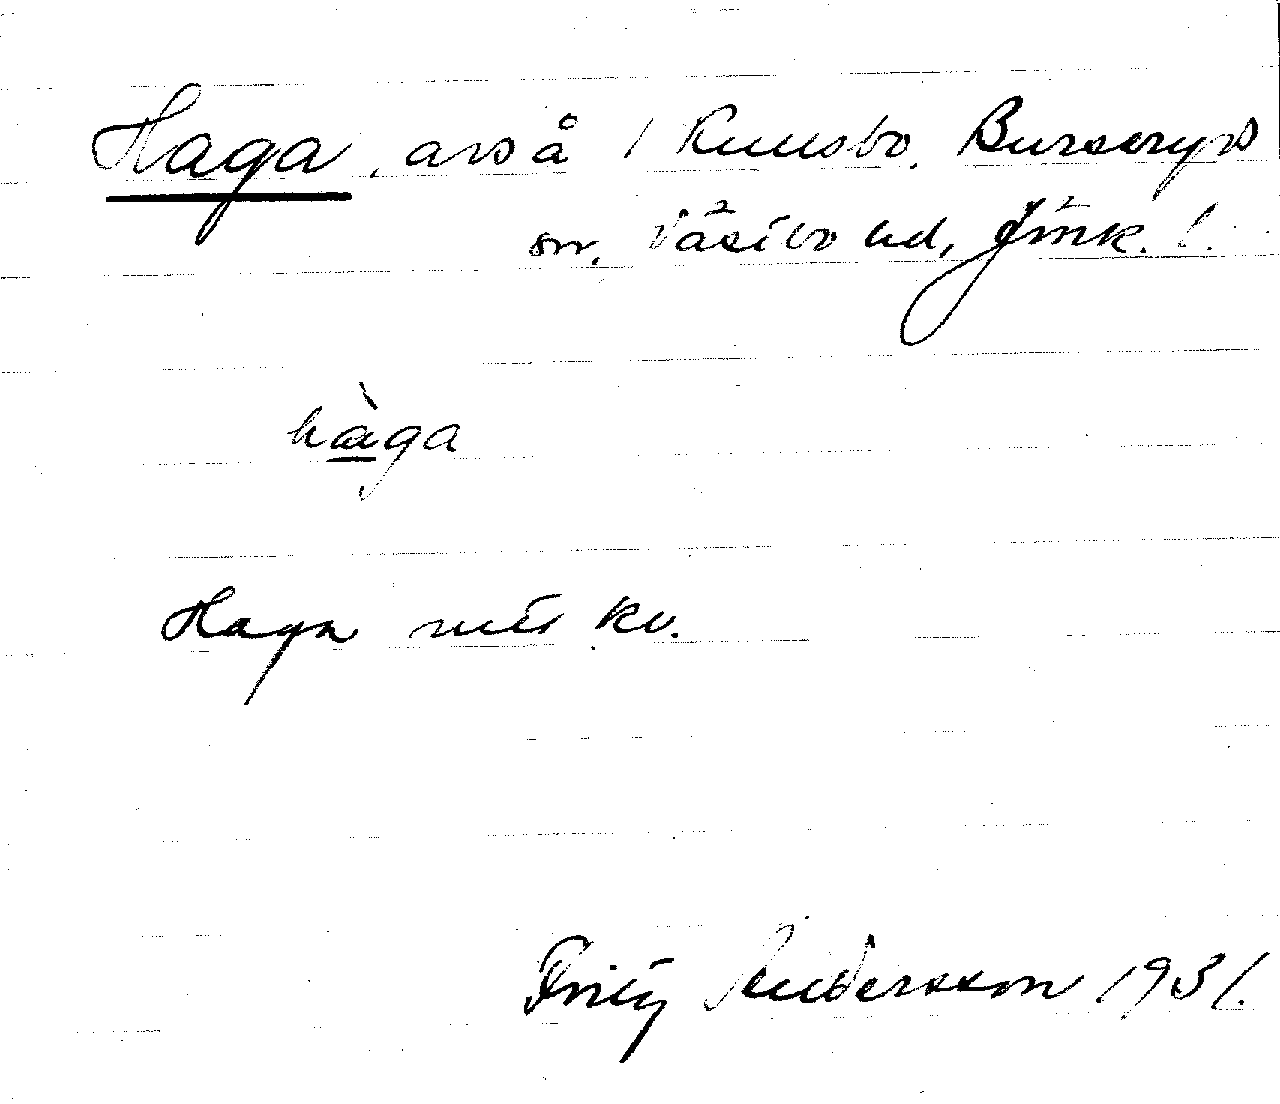 Haga, avs å 1 Kullsbo, Burseryds
sn, Västbo hd, Jönk. l.
hàga
Haga nitt kv.
Fritz Andersson 1931.